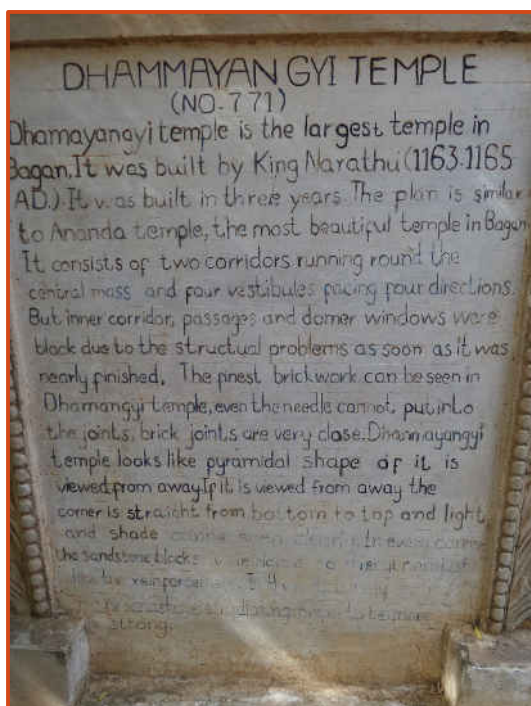 DHAMMAYAN GYI TEMPLE
(NO-771)
Dhamayangyi temple is the largest temple in
Bagan. It was built by King Narathu (1163-1165
AD.). It was built in three years. The plan is similar
to Ananda temple, the most beautiful temple in Bagan
It consists of two corridors running round the
central mass and four vestibules facing four directions.
But inner corridor, passages and domer windows were
block due to the structual problems as soon as it was
nearly finished. The finest brickwork can be seen in
Dhamangyi temple, even the needle cannot, put into
the joints, brick joints are very close. Dhammayangyi
temple looks like pyramidal shape of it is
viewed from away. If it is viewed from away the
corner is straight from bottom to top and light
and shade In every corner
the sandstone blocks
reinforcement
strong.